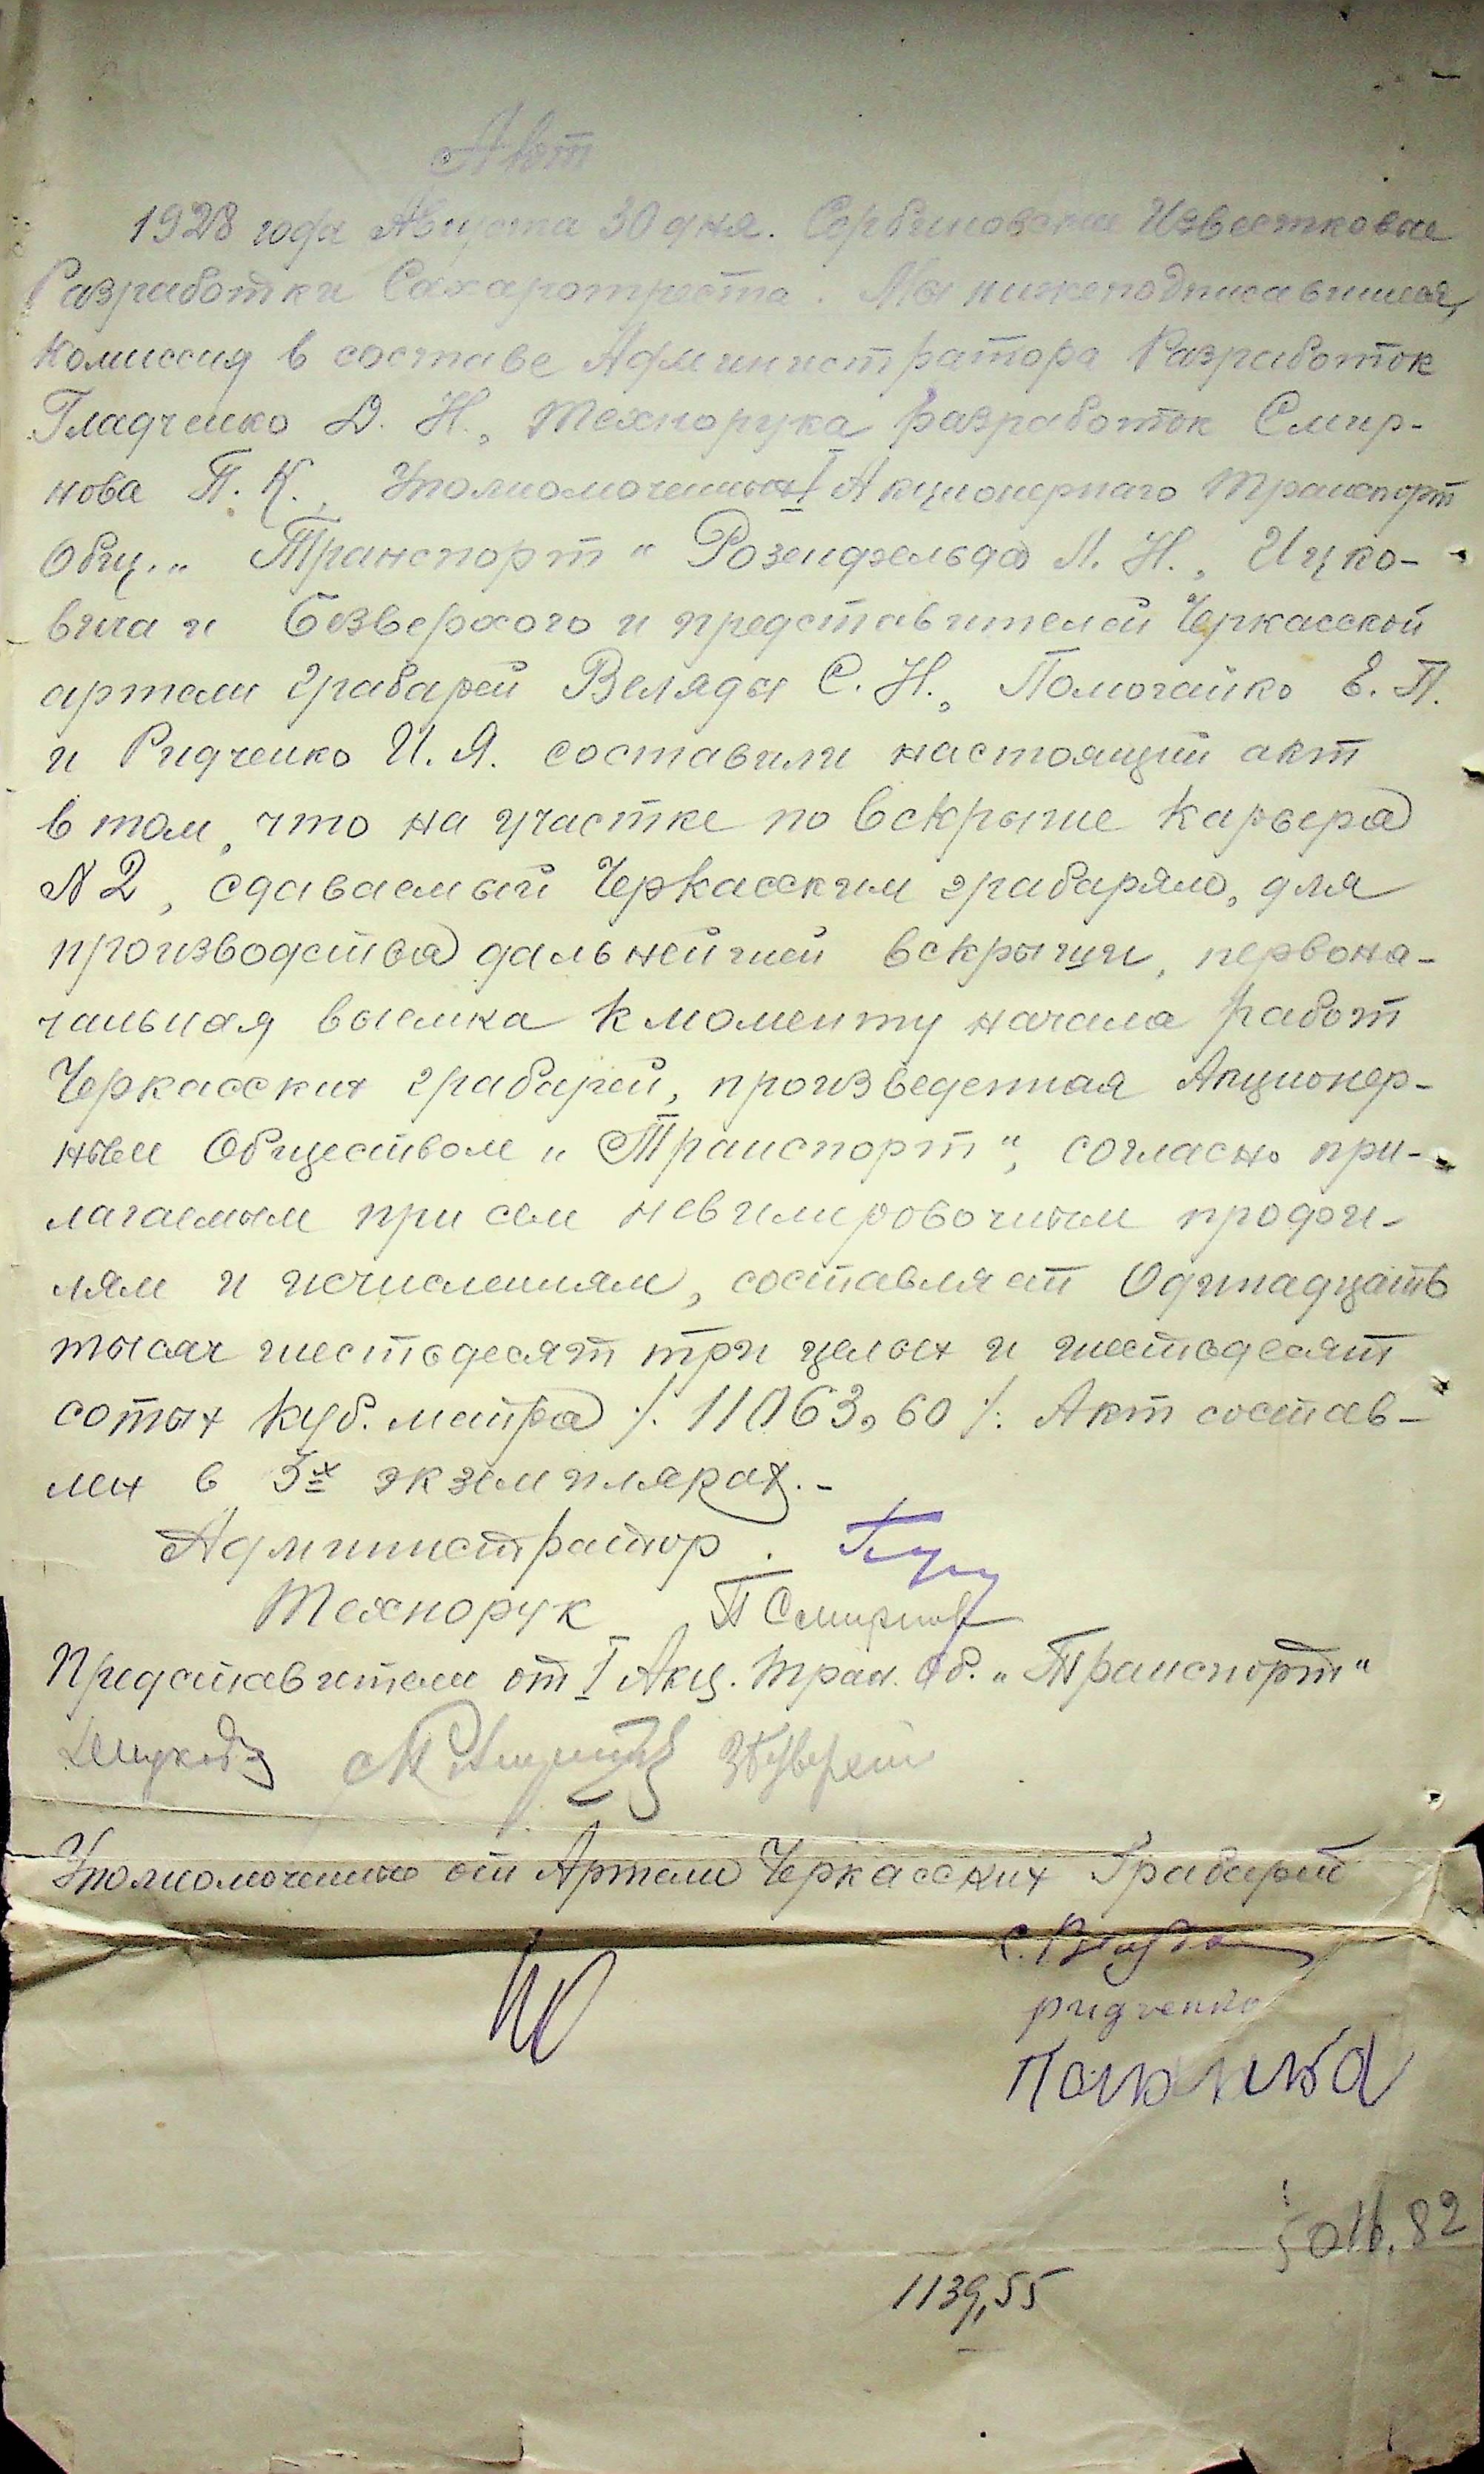 Акт
1928 года Августа 30 дня. Сербиновские Известковые
Разработки Сахаротреста. Мы нижеподписавшиеся,
комиссия в составе Администратора Разработок
Гладченко Д. Н., Технорука разработок Смир-
нова П. К., Уполномоченных I Акционерного Транспорт
Общ. „Транспорт" Розенфельда Л. Н., Ицко-
вича и Безверхого и представителей Черкасской
артели грабарей Веляды С. Н., Помогайко Е. П.
и Ридченко И. Я. составили настоящий акт
в том, что на участке по вскрыше карьера
N 2, сдаваемый Черкасским грабарям, для
производства дальнейшей вскрыши, первона-
чальная выемка к моменту начала работ
Черкасских грабарей, произведенная Акционер-
ным Обществом „Транспорт", согласно при-
лагаемым при сем невилировочным профи-
лям и исчислениям, составляет Одинадцать
тысяч шестьдесят три целых и шестьдесят
сотых куб. метра /. 11063,60 /. Акт состав-
лен в 3х экземплярах.-
Администратор.
Технорук П Смирнов
Представители от I Акц. Тран. Об. „Транспорт"
Уполномоченные от Артели Черкасских Грабарей
ридченко
5016.82
1139,55